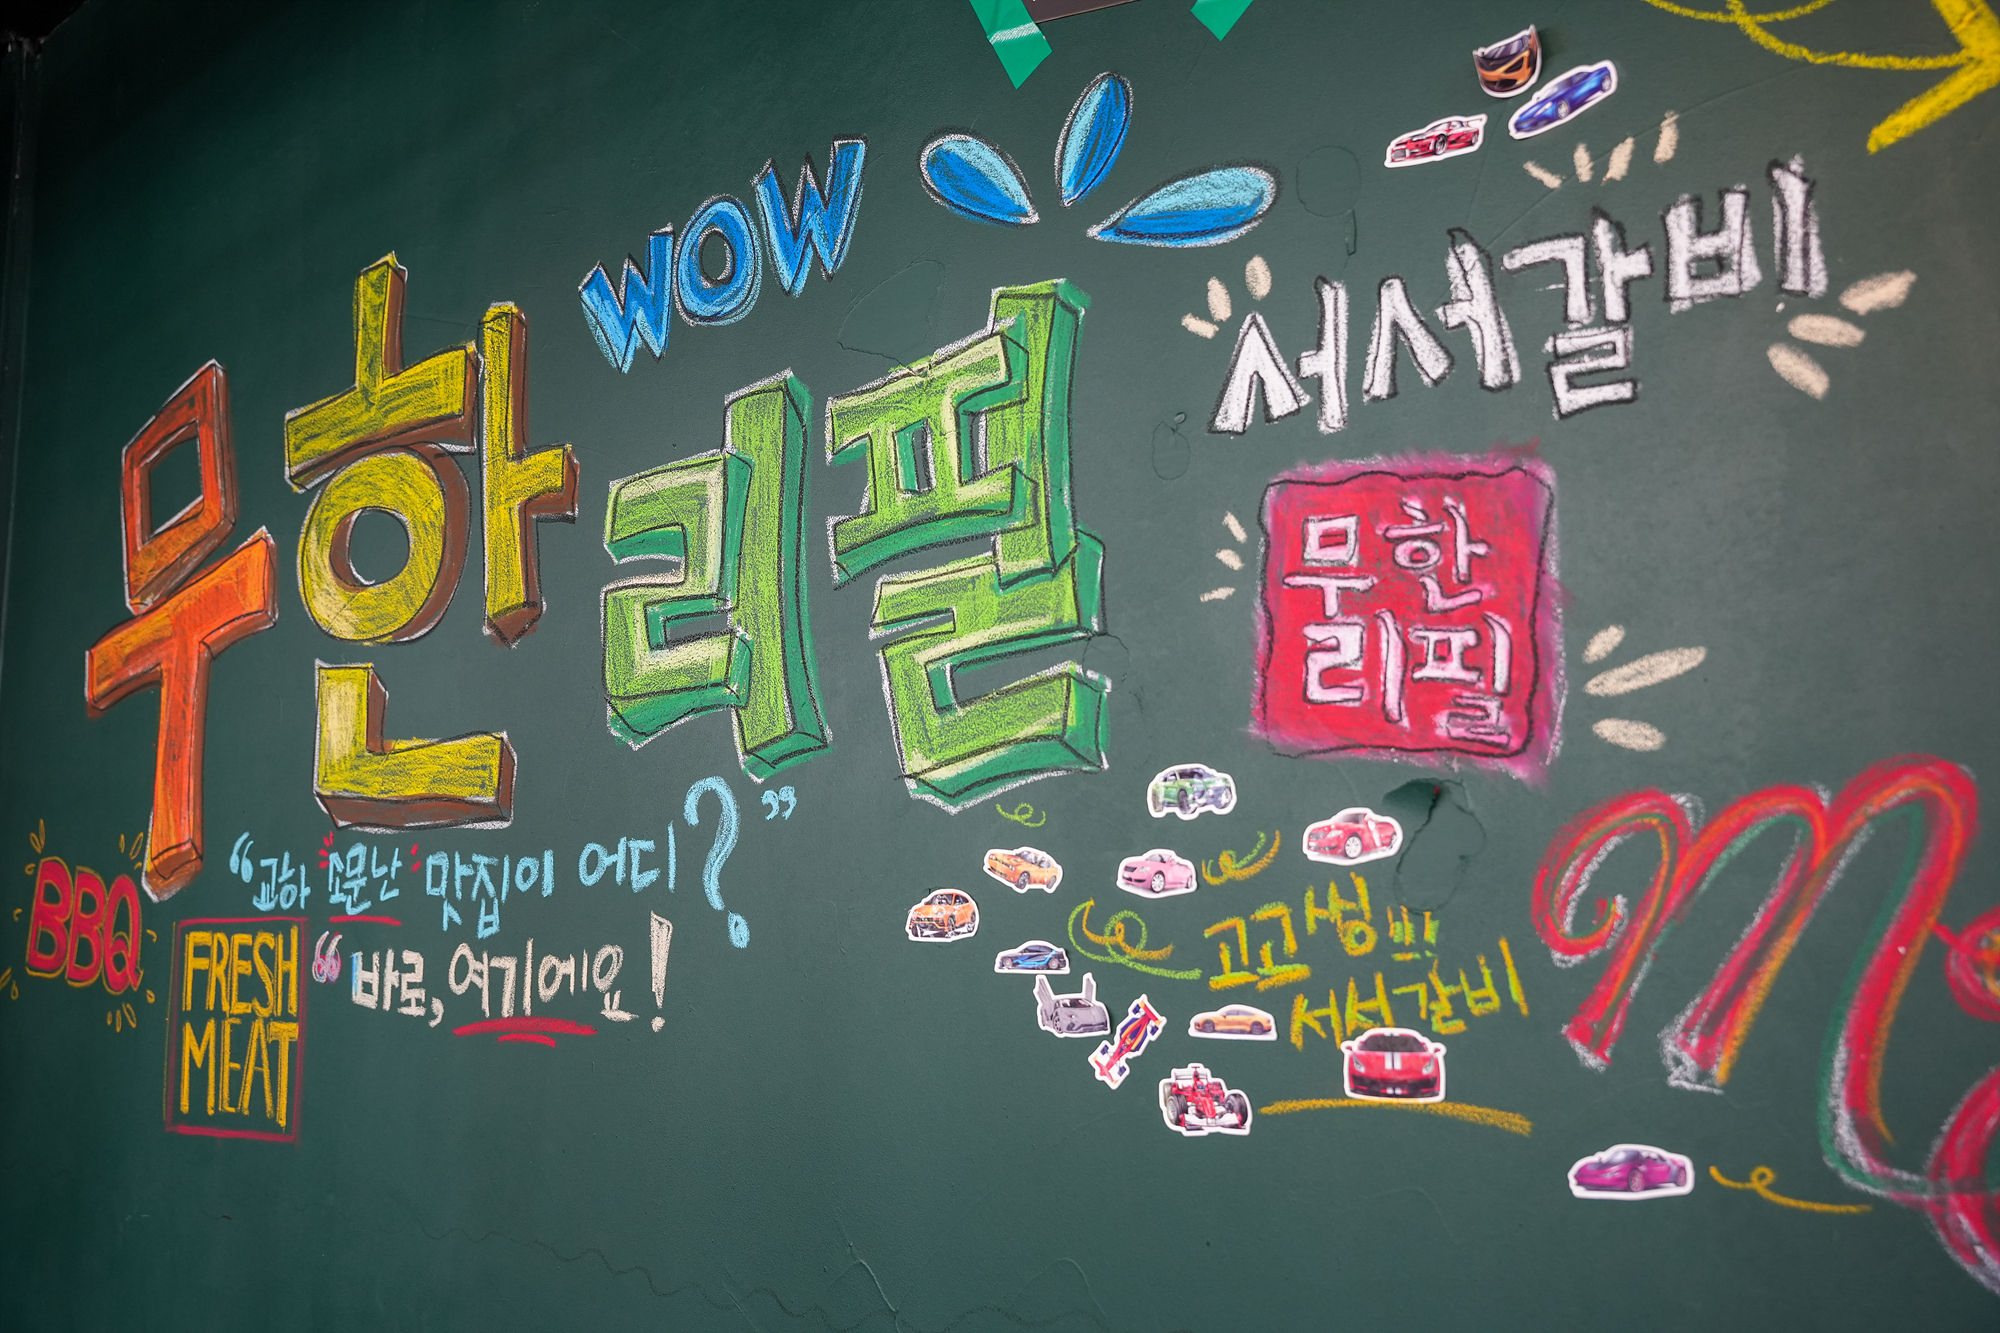 WOW
무한리필
서서갈비
무한
리필
BBQ
FRESH
MEAT
“교하 소문난 맛집이 어디?”
“바로, 여기에요!
고고씽!!!
서서갈비